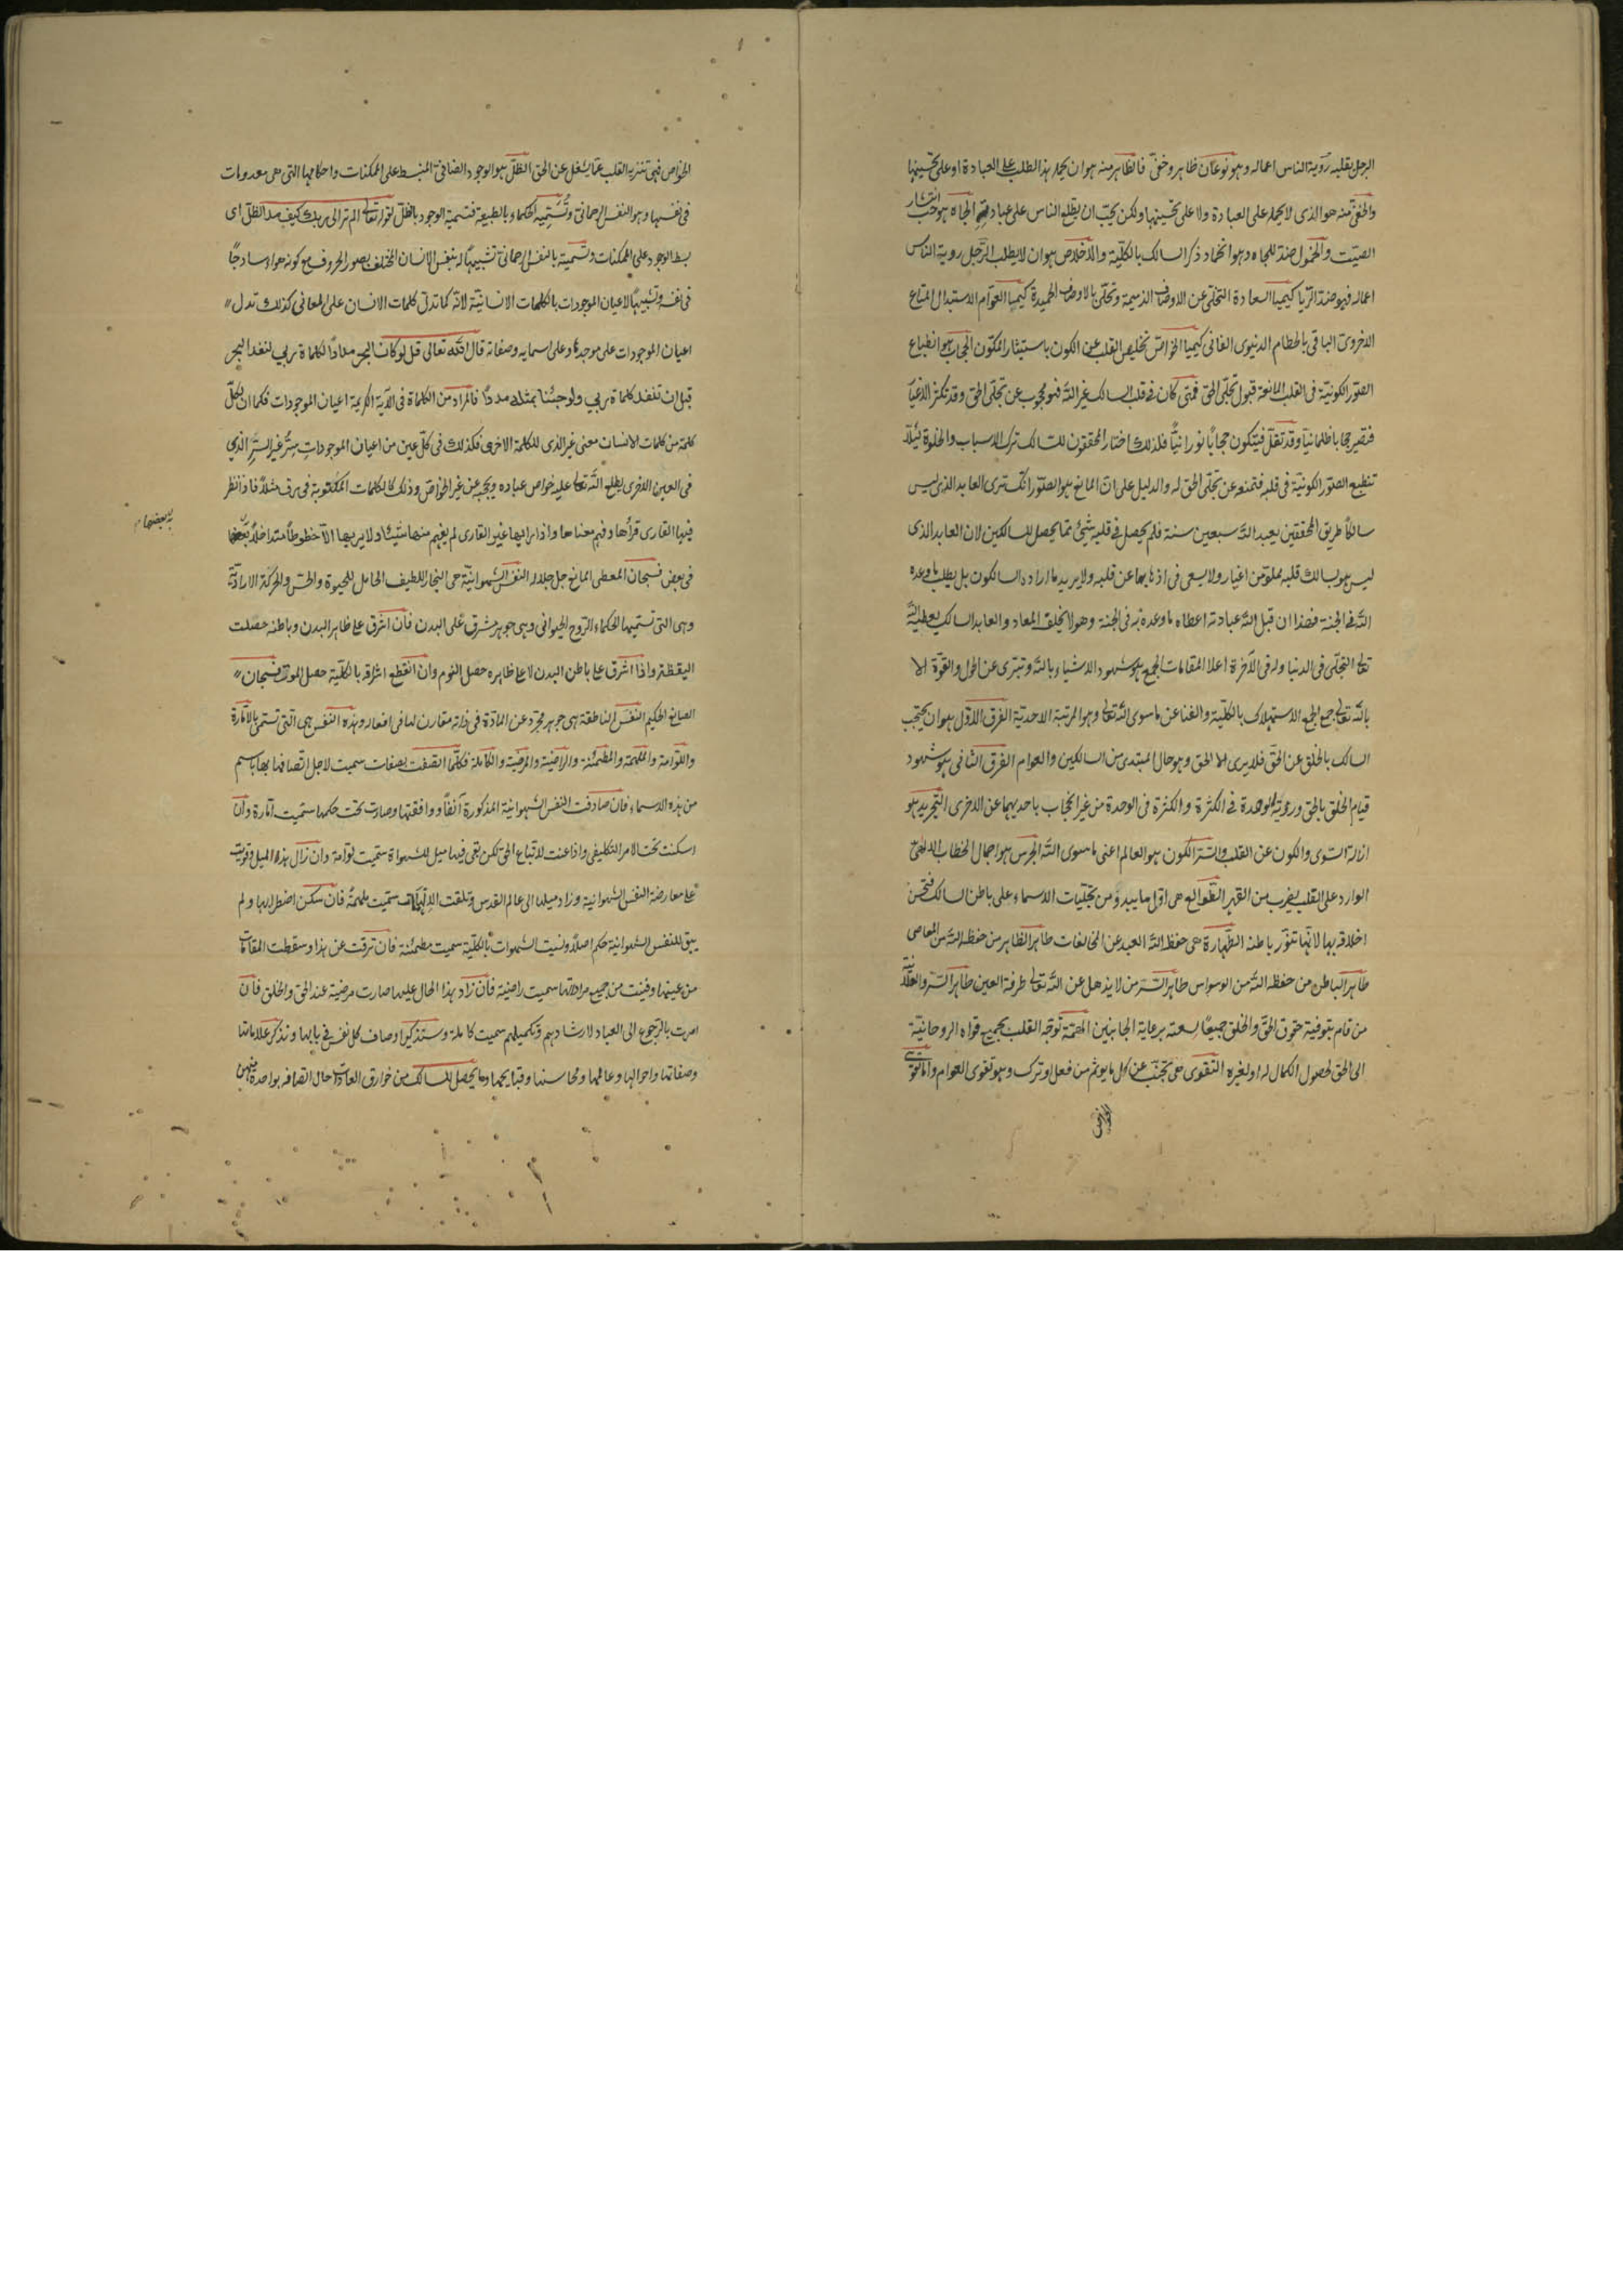 الرجل بقلبه رؤية الناس اعماله وهو نوعان ظاهر وخفي فالظاهر منه هو ان يحمله هذا الطلب على العبادة او على تحسينها
والخفي منه هو الذي لا يحمله على العبادة ولا على تحسينها ولكن يحب ان يطلع الناس على عبادته الجاه هو حب انتشار
الصيت والخمول ضد للجاه وهو انخماد ذكر السالك بالكلية والاخلاص هو ان لا يطلب الرجل روية الناس
اعماله فهو ضد الريا كيميا السعادة التخلي عن الاوصاف الذميمة وتحلي بالاوصاف الحميدة كيميا العوام الاستبدال المتاع
الاخروي الباقي بالحطام الدنيوي الفاني كيميا الخواص تخليص القلب عن الكون باستيثار المكون الحجاب هو انطباع
الصور الكونية في القلب المانعة قبول تجلي الحق فمتى كان في قلب السالك غير الله فهو محجوب عن تجلي الحق وقد تكثر الاغيار
فتصير حجابا ظلمانيا وقد تقل فيتكون حجابًا نورانيًا فلذلك اختار المحققون للسالك ترك الاسباب والخلوة لئلا
تنطبع الصور الكونية في قلبه فتمنعه عن تجلي الحق له والدليل على ان المانع هو الصور انك ترى العابد الذي ليس
سالكًا طريق المحققين يعبد الله سبعين سنة فلم يحصل في قلبه شيئ مما يحصل للسالكين لان العابد الذي
ليس هو بسالك قلبه مملو من اغيار ولا يسعى في اذهابها عن قلبه ولا يريد ما اراده السالكون بل يطلب ما وعده
الله في الجنة فهذا ان قبل الله عبادته اعطاه ما وعده به في الجنة وهو لا يخلف المعاد والعابد السالك يعطيه الله
تعالى التجلي في الدنيا وله في الآخرة اعلا المقامات الجمع هو شهود الاشياء بالله وتبرى عن الحول والقوة الا
بالله تعالى جمع الجمع الاستهلاك بالكلية والفنا عن ما سوى الله تعالى وهو المرتبة الاحدية الفرق الاول هو ان يحتجب
السالك بالخلق عن الحق فلا يرى الا الحق وهو حال المبتدى من السالكين والعوام الفرق الثاني هو شهود
قيام الخلق بالحق ورؤية الوحدة في الكثرة والكثرة في الوحدة من غير انحجاب باحديهما عن الاخرى التجريد هو
ازالة السوى والكون عن القلب والسر الكون هو العالم اعني ما سوى الله الجرس هو اجمال الخطاب الالهي
الوارد على القلب بضرب من القهر الطوالع هى اول ما يبدو من تجليات الاسماء على باطن السالك فتحسن
اخلاقه بها لانها تنور باطنه الطهارة هى حفظ الله العبد عن المخالفات طاهر الظاهر من حفظه الله من المعاصي
طاهر الباطن من حفظه الله من الوسواس طاهر السر من لا يذهل عن الله تعالى طرفة العين طاهر السر والعلانية
من قام بتوفية حقوق الحق والخلق جميعًا لسعته برعاية الجانبين الهمة توجه القلب بجميع قواه الروحانية
الى الحق لحصول الكمال له او لغيره التقوى هى تجنب عن كل ما يوثم من فعل او ترك وهو تقوى العوام واما تقوى
الخواص
الخواص فهى تنزيه القلب عما يشغل عن الحق الظل هو الوجود الضافي المنبسط على الممكنات واحكامها التي هى معدومات
في نفسها وهو النفس الرحماني وتسميه الحكماء بالطبيعة فتسمية الوجود بالظل لقوله تعالى الم تر الى ربك كيف مد الظل اى
بسط الوجود على الممكنات وتسميته بالنفس الرحماني تشبيهًا له بنفس الانسان المختلف بصور الحروف مع كونه هواء ساذجًا
في نفسه وتشبيهًا لاعيان الموجودات بالكلمات الانسانية لانه كما تدل كلمات الانسان على المعاني كذلك تدل
اعيان الموجودات على موجدها وعلى اسمايه وصفاته قال الله تعالى قل لو كان البحر مدادًا لكلمات ربي لنفد البحر
قبل ان تنفد كلمات ربي ولو جئنا بمثله مددًا فالمراد من الكلمات في الآية الكريمة اعيان الموجودات فكما ان لكل
كلمة من كلمات الانسان معنى غير الذي للكلمة الاخرى فكذلك في كل عين من اعيان الموجودات سر غير السر الذي
في العين الاخرى يطلع الله تعالى عليه خواص عباده ويحجبه عن غير الخواص وذلك كالكلمات المكتوبة في رق مثلا فاذا نظر
فيها القارى قرأها وفهم معناها واذا راءها غير القارى لم يفهم منها شيئا ولا يريها الا خطوطا متداخلا بعضها
به بعضها
في بعض فسبحان المعطى المانع جل جلاله النفس الشهوانية هى البخار اللطيف الحامل للحيوة والحس والحركة الارادية
وهى التي تسميها الحكماء الروح الحيواني وهى جوهر مشرق على البدن فان اشرق على ظاهر البدن وباطنه حصلت
اليقظة واذا اشرق على باطن البدن لا على ظاهره حصل النوم وان انقطع اشراقه بالكلية حصل الموت فسبحان
الصانع الحكيم النفس الناطقة هى جوهر مجرد عن المادة في ذاته مقارن لها في افعاله وهذه النفس هى التي تسمى بالامارة
واللوامة والملهمة والمطمئنة والراضية والمرضية والكاملة فكلما اتصفت بصفات سميت لاجل اتصافها بها باسم
من هذه الاسماء فان صادفت النفس الشهوانية المذكورة آنفًا ووافقتها وصارت تحت حكمها سميت امارة وان
اسكنت تحت الامر التكليفي واذاعنت لاتباع الحق لكن بقى فيها ميل للشهوات سميت لوامة وان زال هذا الميل وقويت
على معارضة النفس الشهوانية وزاد ميلها الى عالم القدس وتلقت الالهامات سميت ملهمة فان سكن اضطرابها ولم
يبق للنفس الشهوانية حكم اصلا ونسيت الشهوات بالكلية سميت مطمئنة فان ترقت عن هذا وسقطت المقامات
من عينها وفنيت من جميع مراداتها سميت راضية فان زاد بهذا الحال عليها صارت مرضية عند الحق والخلق فان
امرت بالرجوع الى العباد لارشادهم وتكميلهم سميت كاملة وستذكر اوصاف كل نفس في بابها ونذكر علاماتها
وصفاتها واحوالها وعالمها ومحاسنها وقبايحها وما يحصل للسالك من خوارق العادات حال اتصافه بواحدة منهن